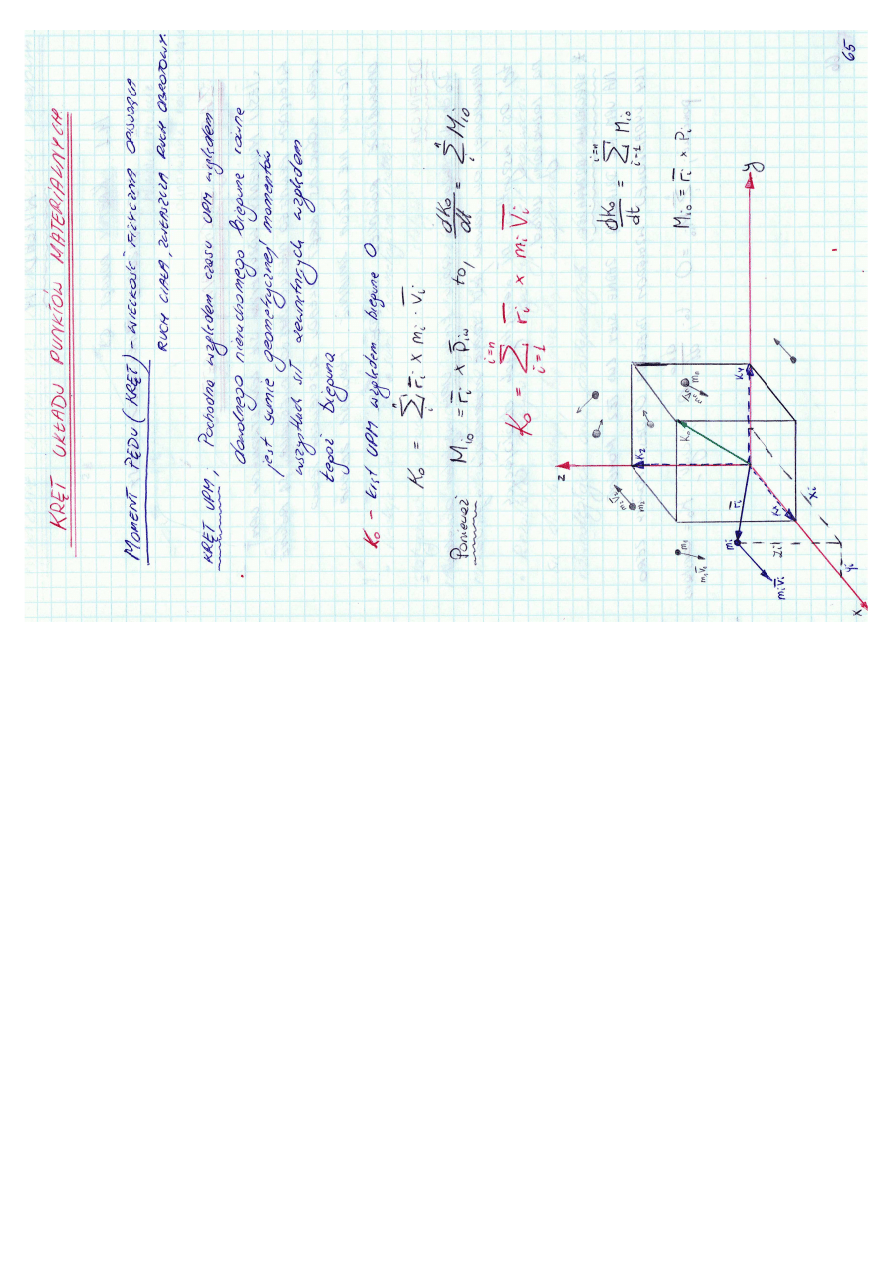 65
KRĘT UKŁADU PUNKTÓW MATERIALNYCH
MOMENT PĘDU (KRĘT) - WIELKOŚĆ FIZYCZNA OPISUJĄCA
RUCH CIAŁA, ZWŁASZCZA RUCH OBROTOWY.
KRĘT UPM, Pochodna względem czasu UPM względem
dowolnego nieruchomego bieguna równe
jest sumie geometrycznej momentów
wszystkich sił zewnętrznych względem
tegoż bieguna
K₀ - kręt UPM względem bieguna O
K₀ = Σ r̄ᵢ × mᵢ · V̄ᵢ
Ponieważ Mᵢ₀ = r̄ᵢ × P̄ᵢw to, dK₀/dt = Σ Mᵢ₀
K₀ = Σ r̄ᵢ × mᵢ V̄ᵢ
i=n
i=1
dK₀/dt = Σ Mᵢ₀
i=n
i=1
Mᵢ₀ = r̄ᵢ × Pᵢ
z
Kz
K₀
Ky
y
Kx
x
r̄ᵢ
mᵢ
mᵢV̄ᵢ
zᵢ
xᵢ
yᵢ
m₁
m₁V̄₁
m₂